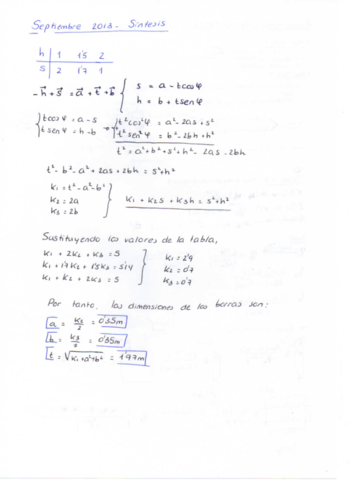 Septiembre 2013 - Síntesis
h 1 1'5 2
s 2 1'7 1
-h+s = a+t+b { s = a - tcosφ
h = b + tsenφ
{ tcosφ = a-s
tsenφ = h-b
t²cos²φ = a²-2as+s²
t²sen²φ = b²-2bh+h²
t² = a²+b²+s²+h²-2as-2bh
t²-b²-a²+2as+2bh = s²+h²
K1 = t²-a²-b²
K2 = 2a
K3 = 2b
K1 + K2s + K3h = s²+h²
Sustituyendo los valores de la tabla,
K1 + 2K2 + K3 = 5
K1 + 1'7K2 + 1'5K3 = 5'14
K1 + K2 + 2K3 = 5
K1 = 2'9
K2 = 0'7
K3 = 0'7
Por tanto, las dimensiones de las barras son:
a = K2/2 = 0'35m
b = K3/2 = 0'35m
t = √K1+a²+b² = 1'77m